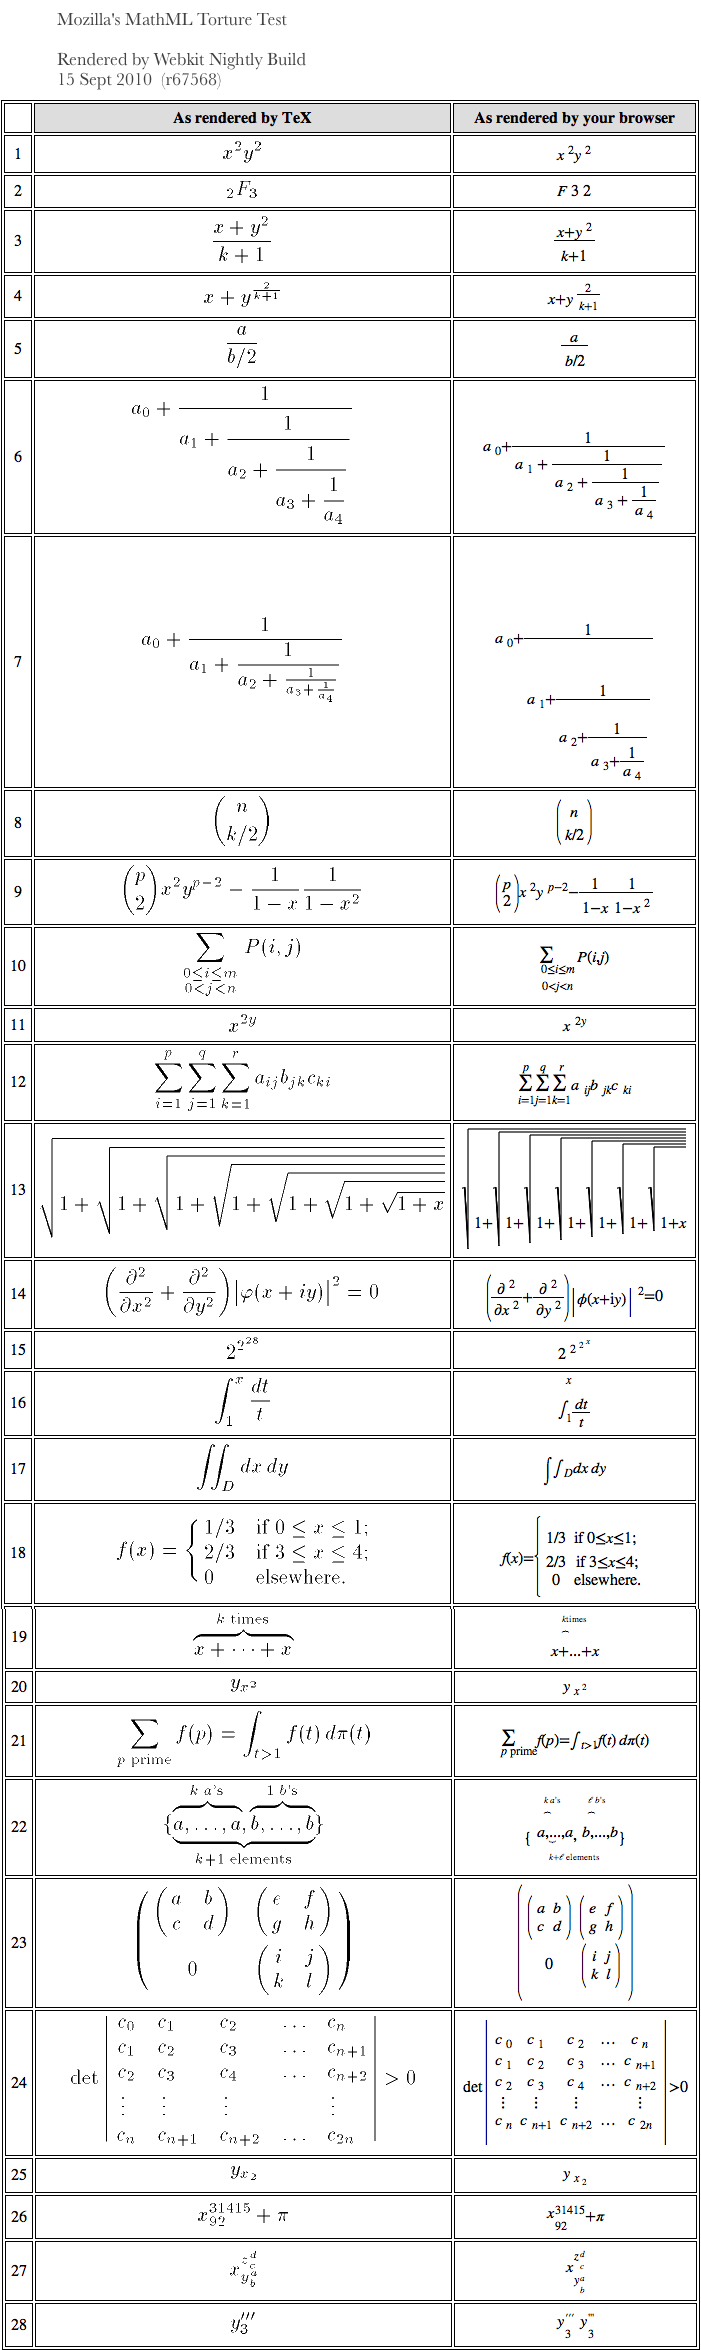 Mozilla's MathML Torture Test
Rendered by Webkit Nightly Build
15 Sept 2010 (r67568)
As rendered by TeX As rendered by your browser
1 $x^2y^2$ $x^2y^2$
2 ${}_2F_3$ $F\,3\,2$
3 $\frac{x+y^2}{k+1}$ $\frac{x+y^2}{k+1}$
4 $x+y^{\frac{2}{k+1}}$ $x+y^{\frac{2}{k+1}}$
5 $\frac{a}{b/2}$ $\frac{a}{b/2}$
6 $a_0+\frac{1}{a_1+\frac{1}{a_2+\frac{1}{a_3+\frac{1}{a_4}}}}$ $a_0+\frac{1}{a_1+\frac{1}{a_2+\frac{1}{a_3+\frac{1}{a_4}}}}$
7 $a_0+\frac{1}{a_1+\frac{1}{a_2+\frac{1}{a_3+\frac{1}{a_4}}}}$ $a_0+\frac{1}{a_1+\frac{1}{a_2+\frac{1}{a_3+\frac{1}{a_4}}}}$
8 $\binom{n}{k/2}$ $\binom{n}{k/2}$
9 $\binom{p}{2}x^2y^{p-2}-\frac{1}{1-x}\frac{1}{1-x^2}$ $\binom{p}{2}x^2y^{p-2}-\frac{1}{1-x}\frac{1}{1-x^2}$
10 $\sum_{\substack{0\le i\le m\\0<j<n}}P(i,j)$ $\sum_{\substack{0\le i\le m\\0<j<n}}P(i,j)$
11 $x^{2y}$ $x^{2y}$
12 $\sum_{i=1}^{p}\sum_{j=1}^{q}\sum_{k=1}^{r}a_{ij}b_{jk}c_{ki}$ $\sum_{i=1}^{p}\sum_{j=1}^{q}\sum_{k=1}^{r}a_{ij}b_{jk}c_{ki}$
13 $\sqrt{1+\sqrt{1+\sqrt{1+\sqrt{1+\sqrt{1+\sqrt{1+\sqrt{1+x}}}}}}}$ $\sqrt{1+\sqrt{1+\sqrt{1+\sqrt{1+\sqrt{1+\sqrt{1+\sqrt{1+x}}}}}}}$
14 $\left(\frac{\partial^2}{\partial x^2}+\frac{\partial^2}{\partial y^2}\right)|\varphi(x+iy)|^2=0$ $\left(\frac{\partial^2}{\partial x^2}+\frac{\partial^2}{\partial y^2}\right)|\phi(x+iy)|^2=0$
15 $2^{2^{28}}$ $2^{2^{2^x}}$
16 $\int_1^x\frac{dt}{t}$ $\int_1^x\frac{dt}{t}$
17 $\iint_D dx\,dy$ $\int\int_D dx\,dy$
18 $f(x)=\begin{cases}1/3&\text{if }0\le x\le 1;\\2/3&\text{if }3\le x\le 4;\\0&\text{elsewhere.}\end{cases}$ $f(x)=\begin{cases}1/3&\text{if }0\le x\le 1;\\2/3&\text{if }3\le x\le 4;\\0&\text{elsewhere.}\end{cases}$
19 $\overbrace{x+\cdots+x}^{k\text{ times}}$ $\overbrace{x+...+x}^{k\text{times}}$
20 $y_{x^2}$ $y_{x^2}$
21 $\sum_{p\text{ prime}}f(p)=\int_{t>1}f(t)\,d\pi(t)$ $\sum_{p\text{ prime}}f(p)=\int_{t>1}f(t)\,d\pi(t)$
22 $\{\underbrace{\overbrace{a,\ldots,a}^{k\ a\text{'s}},\overbrace{b,\ldots,b}^{1\ b\text{'s}}}_{k+1\text{ elements}}\}$ $\{\underbrace{\overbrace{a,...,a}^{k\ a\text{'s}},\overbrace{b,...,b}^{\ell\ b\text{'s}}}_{k+\ell\text{ elements}}\}$
23 $\begin{pmatrix}\begin{pmatrix}a&b\\c&d\end{pmatrix}&\begin{pmatrix}e&f\\g&h\end{pmatrix}\\0&\begin{pmatrix}i&j\\k&l\end{pmatrix}\end{pmatrix}$ $\begin{pmatrix}\begin{pmatrix}a&b\\c&d\end{pmatrix}&\begin{pmatrix}e&f\\g&h\end{pmatrix}\\0&\begin{pmatrix}i&j\\k&l\end{pmatrix}\end{pmatrix}$
24 $\det\begin{vmatrix}c_0&c_1&c_2&\ldots&c_n\\c_1&c_2&c_3&\ldots&c_{n+1}\\c_2&c_3&c_4&\ldots&c_{n+2}\\\vdots&\vdots&\vdots&&\vdots\\c_n&c_{n+1}&c_{n+2}&\ldots&c_{2n}\end{vmatrix}>0$ $\det\begin{vmatrix}c_0&c_1&c_2&\ldots&c_n\\c_1&c_2&c_3&\ldots&c_{n+1}\\c_2&c_3&c_4&\ldots&c_{n+2}\\\vdots&\vdots&\vdots&&\vdots\\c_n&c_{n+1}&c_{n+2}&\ldots&c_{2n}\end{vmatrix}>0$
25 $y_{x_2}$ $y_{x_2}$
26 $x_{92}^{31415}+\pi$ $x_{92}^{31415}+\pi$
27 $x_{y_b^a}^{z_c^d}$ $x_{y_b^a}^{z_c^d}$
28 $y_3'''$ $y_3'''\ y_3'''$